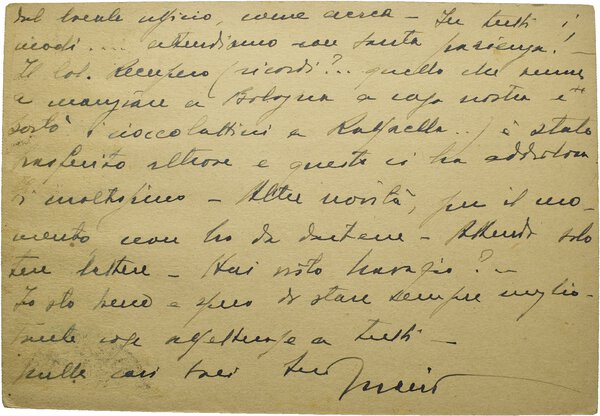 dal locale ufficio, come cerca - In tutti i
modi .... attendiamo con tanta pazienza!
Il Col. Recupero (ricordi?... quello che venne
a mangiare a Bologna a casa nostra e
portò i cioccolattini a Raffaella...) è stato
trasferito altrove e questo ci ha addolora
ti moltissimo - Altre novità, per il mo-
mento non ho da dartene - Attendo solo
tue lettere - Hai visto ?...
Io sto bene e spero di stare sempre meglio -
tante cose affettuose a tutti -
mille cari baci tuo